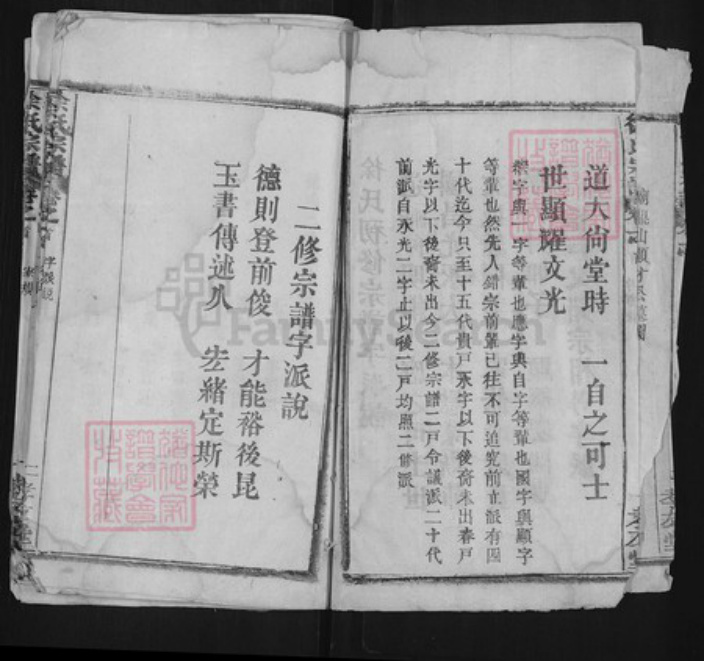 道大尙堂時 一自之可士
世顯耀文光
榮字與一字等輩也應字與自字等輩也國字與顯字
等輩也然先人錯宗前輩已往不可追究前立派有四
十代迄今只至十五代貴戸永字以下後裔未出春戸
光字以下後裔未出今二修宗譜二戸令議派二十代
前派自永光二字止以後二戸均照二修派
二修宗譜字派說
德則登前俊 才能裕後昆
玉書傳述久 宏緒定斯榮
徐氏宗譜
字派說
FamilySearch